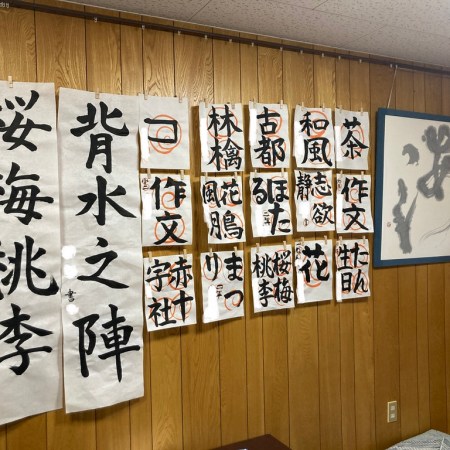 桜梅桃李
背水之陣
書
コ
林檎
古都
和風
茶
作文
ほたる
作文
赤十字社
まつり
桜梅桃李
花
たん生日